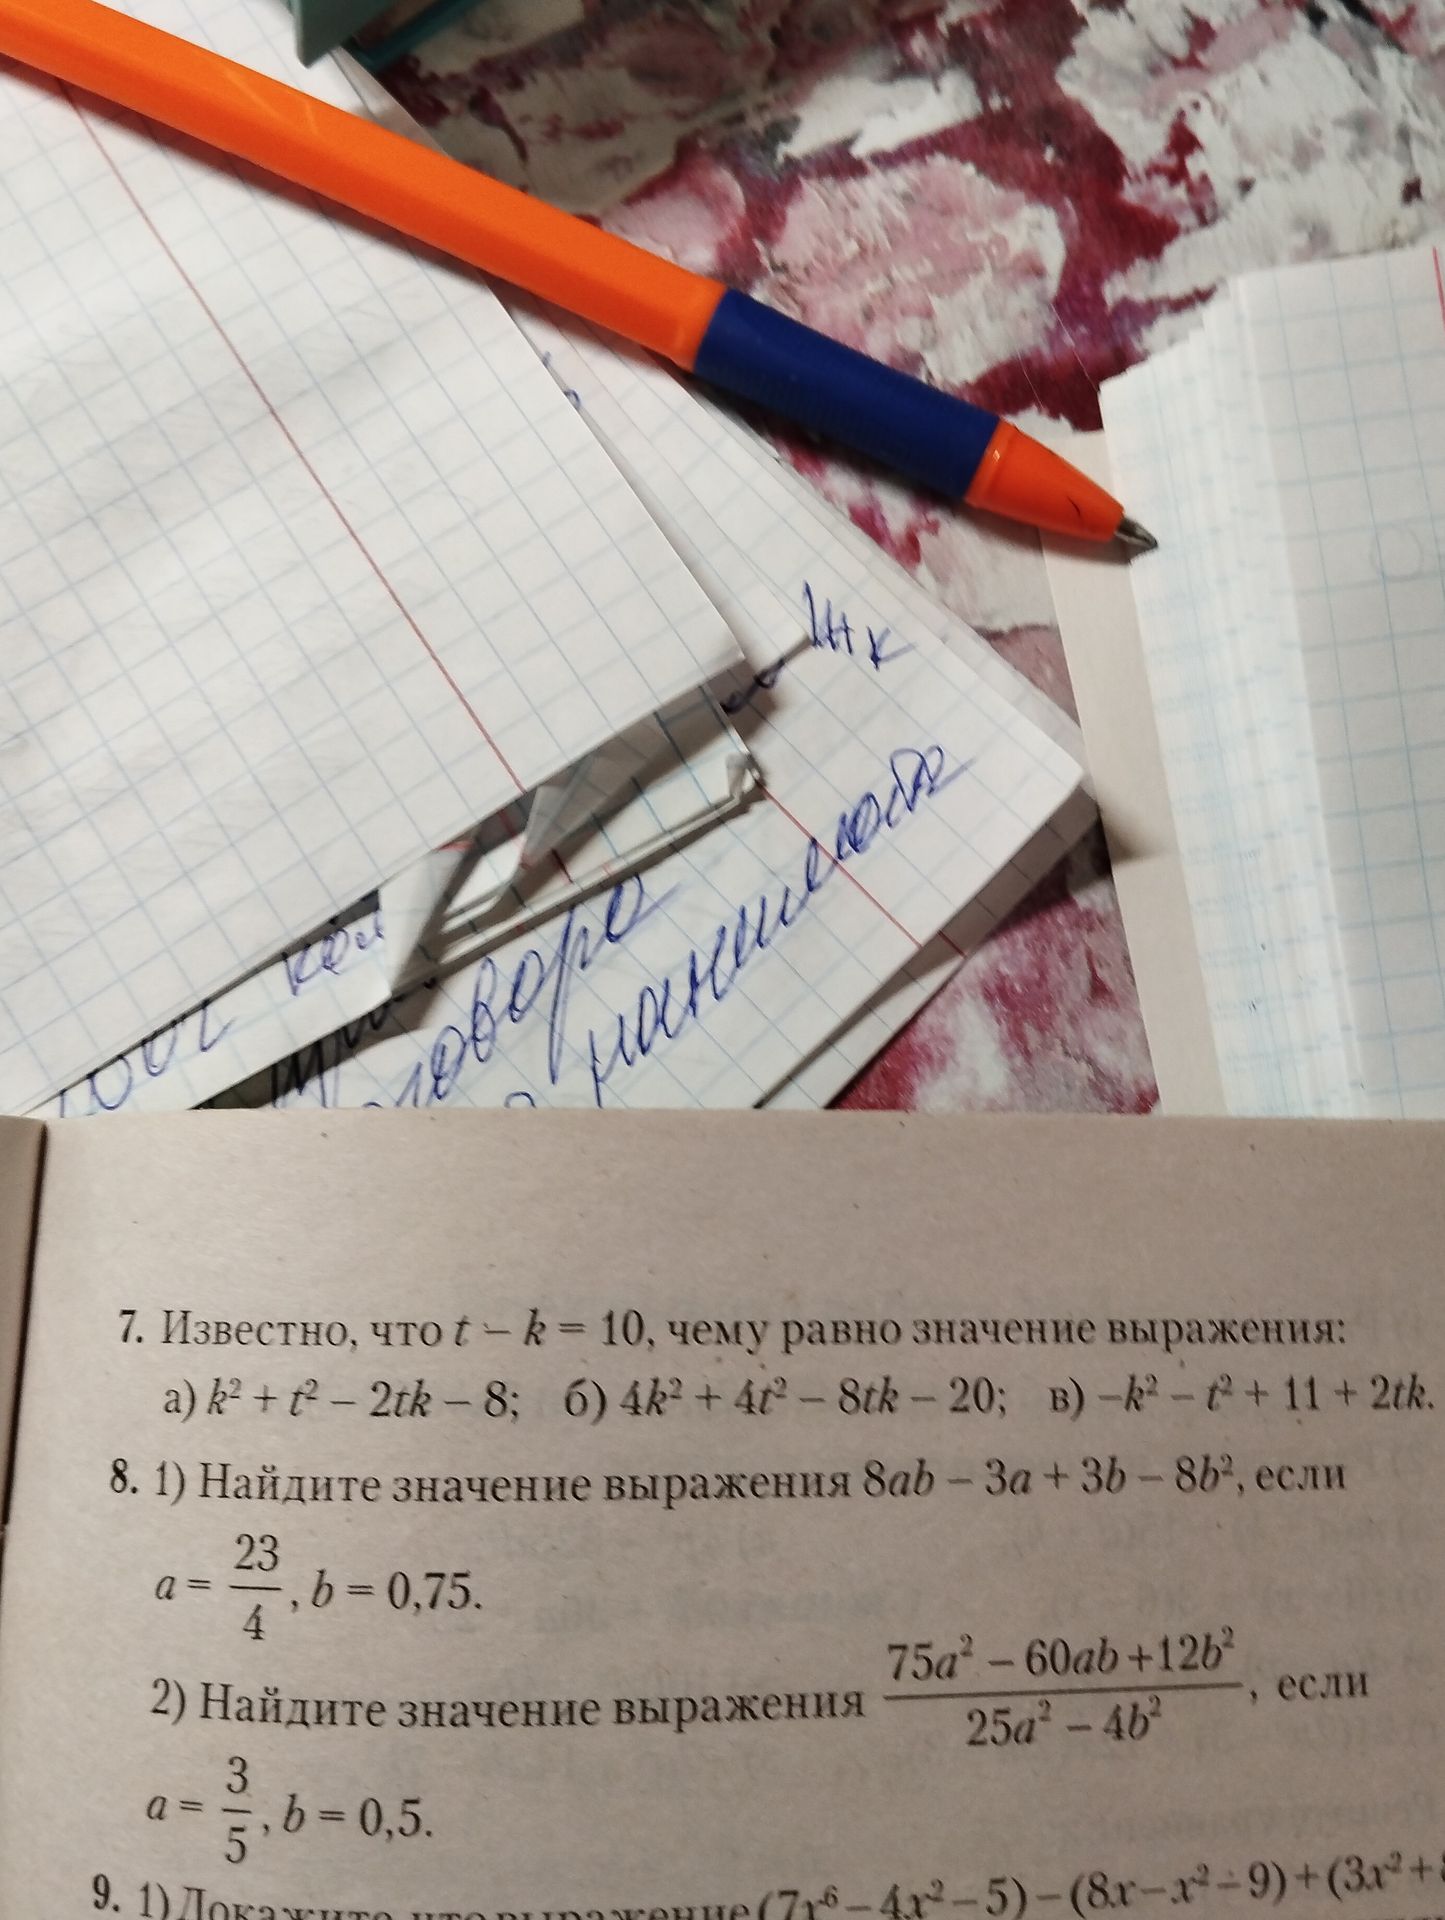 кол
7. Известно, что t – k = 10, чему равно значение выражения:
а) k² + t² – 2tk – 8; б) 4k² + 4t² – 8tk – 20; в) –k² – t² + 11 + 2tk.
8. 1) Найдите значение выражения 8ab – 3a + 3b – 8b², если
a = 23/4, b = 0,75.
2) Найдите значение выражения (75a² – 60ab + 12b²)/(25a² – 4b²), если
a = 3/5, b = 0,5.
9. 1) Докажите, что выражение (7x⁶ – 4x² – 5) – (8x – x² – 9) + (3x² +